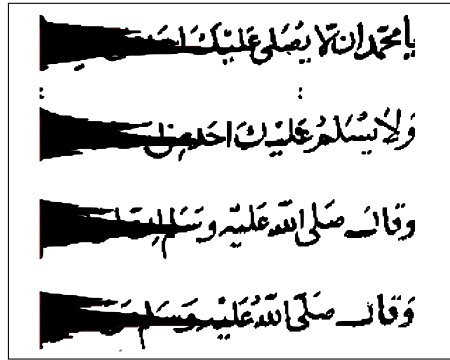 يا محمد ان لا يصلى عليك احد
ولا يسلم عليك احد من
وقال صلى الله عليه وسلم
وقال صلى الله عليه وسلم